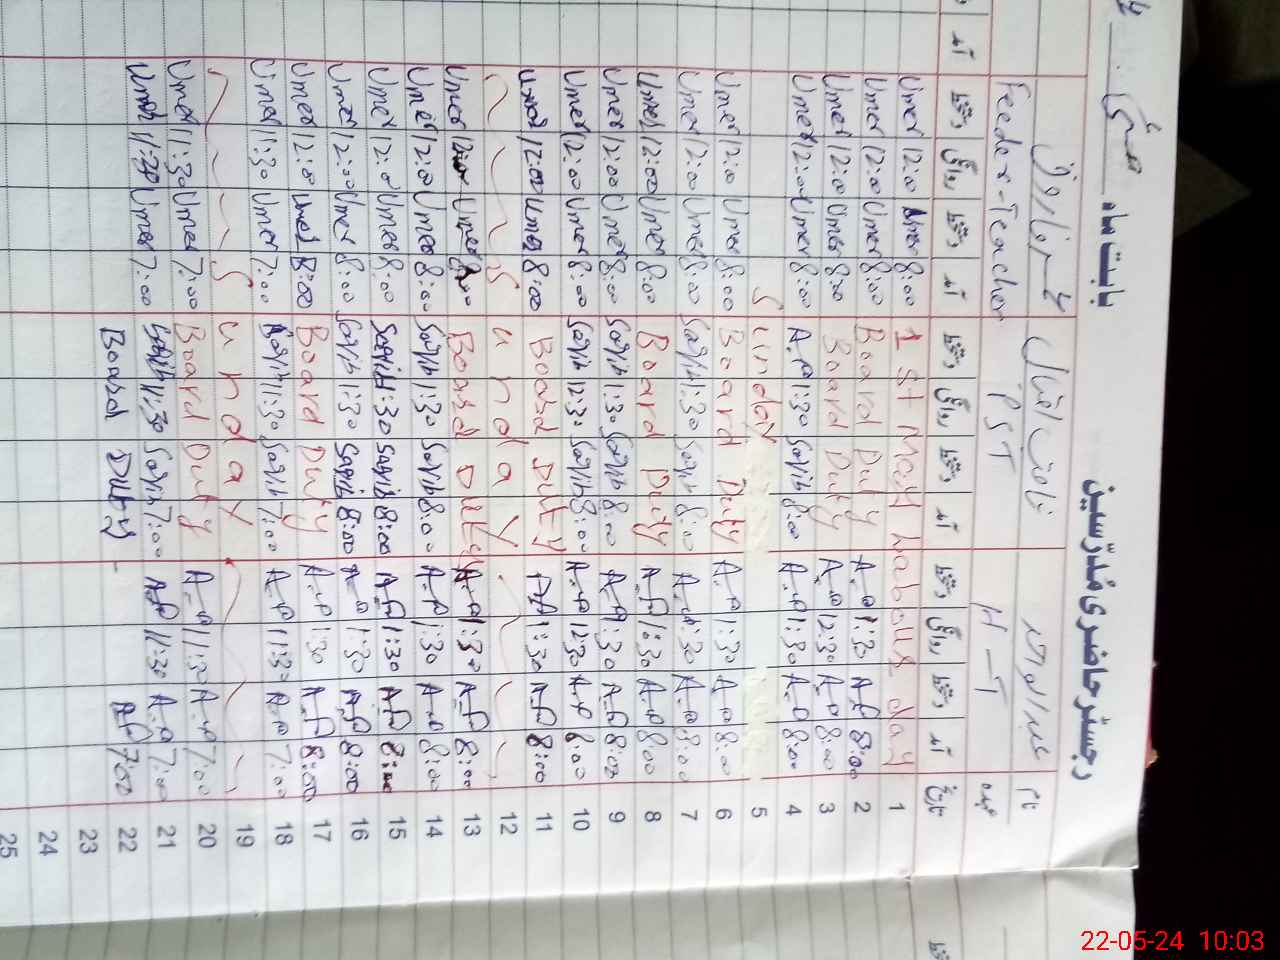 رجسٹر حاضری مُدرّسین
بابت ماہ مئی
نام عبدالوھاب ثاقب اقبال عمر فاروق
عہدہ H-T PST Feeder-Teacher
تاریخ آمد دستخط روانگی دستخط آمد دستخط روانگی دستخط آمد دستخط روانگی دستخط آمد
1 1st May Labour day 8:00 Umer 12:00 Umer
2 8:00 A-A 1:30 A-A Board Duty 8:00 Umer 12:00 Umer
3 8:00 A-A 12:30 A-A Board Duty 8:00 Umer 12:00 Umer
4 8:00 A-A 1:30 A-A 8:00 Saqib 1:30 A-A 8:00 Umer 12:00 Umer
5 Sunday
6 8:00 A-A 1:30 A-A Board Duty 8:00 Umer 12:00 Umer
7 8:00 A-A 1:30 A-A 8:00 Saqib 1:30 Saqib 8:00 Umer 12:00 Umer
8 8:00 A-A 1:30 A-A Board Duty 8:00 Umer 12:00 Umer
9 8:00 A-A 1:30 A-A 8:00 Saqib 1:30 Saqib 8:00 Umer 12:00 Umer
10 8:00 A-A 12:30 A-A 8:00 Saqib 12:30 Saqib 8:00 Umer 12:00 Umer
11 8:00 A-A 1:30 A-A Board Duty 8:00 Umer 12:00 Umer
12 Sunday
13 8:00 A-A 1:30 A-A Board Duty 8:00 Umer 12:00 Umer
14 8:00 A-A 1:30 A-A 8:00 Saqib 1:30 Saqib 8:00 Umer 12:00 Umer
15 8:00 A-A 1:30 A-A 8:00 Saqib 1:30 Saqib 8:00 Umer 12:00 Umer
16 8:00 A-A 1:30 A-A 8:00 Saqib 1:30 Saqib 8:00 Umer 12:00 Umer
17 8:00 A-A 1:30 A-A Board Duty 8:00 Umer 12:00 Umer
18 7:00 A-A 11:30 A-A 7:00 Saqib 11:30 Saqib 7:00 Umer 11:30 Umer
19 Sunday
20 7:00 A-A 11:30 A-A Board Duty 7:00 Umer 11:30 Umer
21 7:00 A-A 11:30 A-A 7:00 Saqib 11:30 Saqib 7:00 Umer 11:30 Umer
22 7:00 A-A Board Duty
23
24
25
22-05-24 10:03